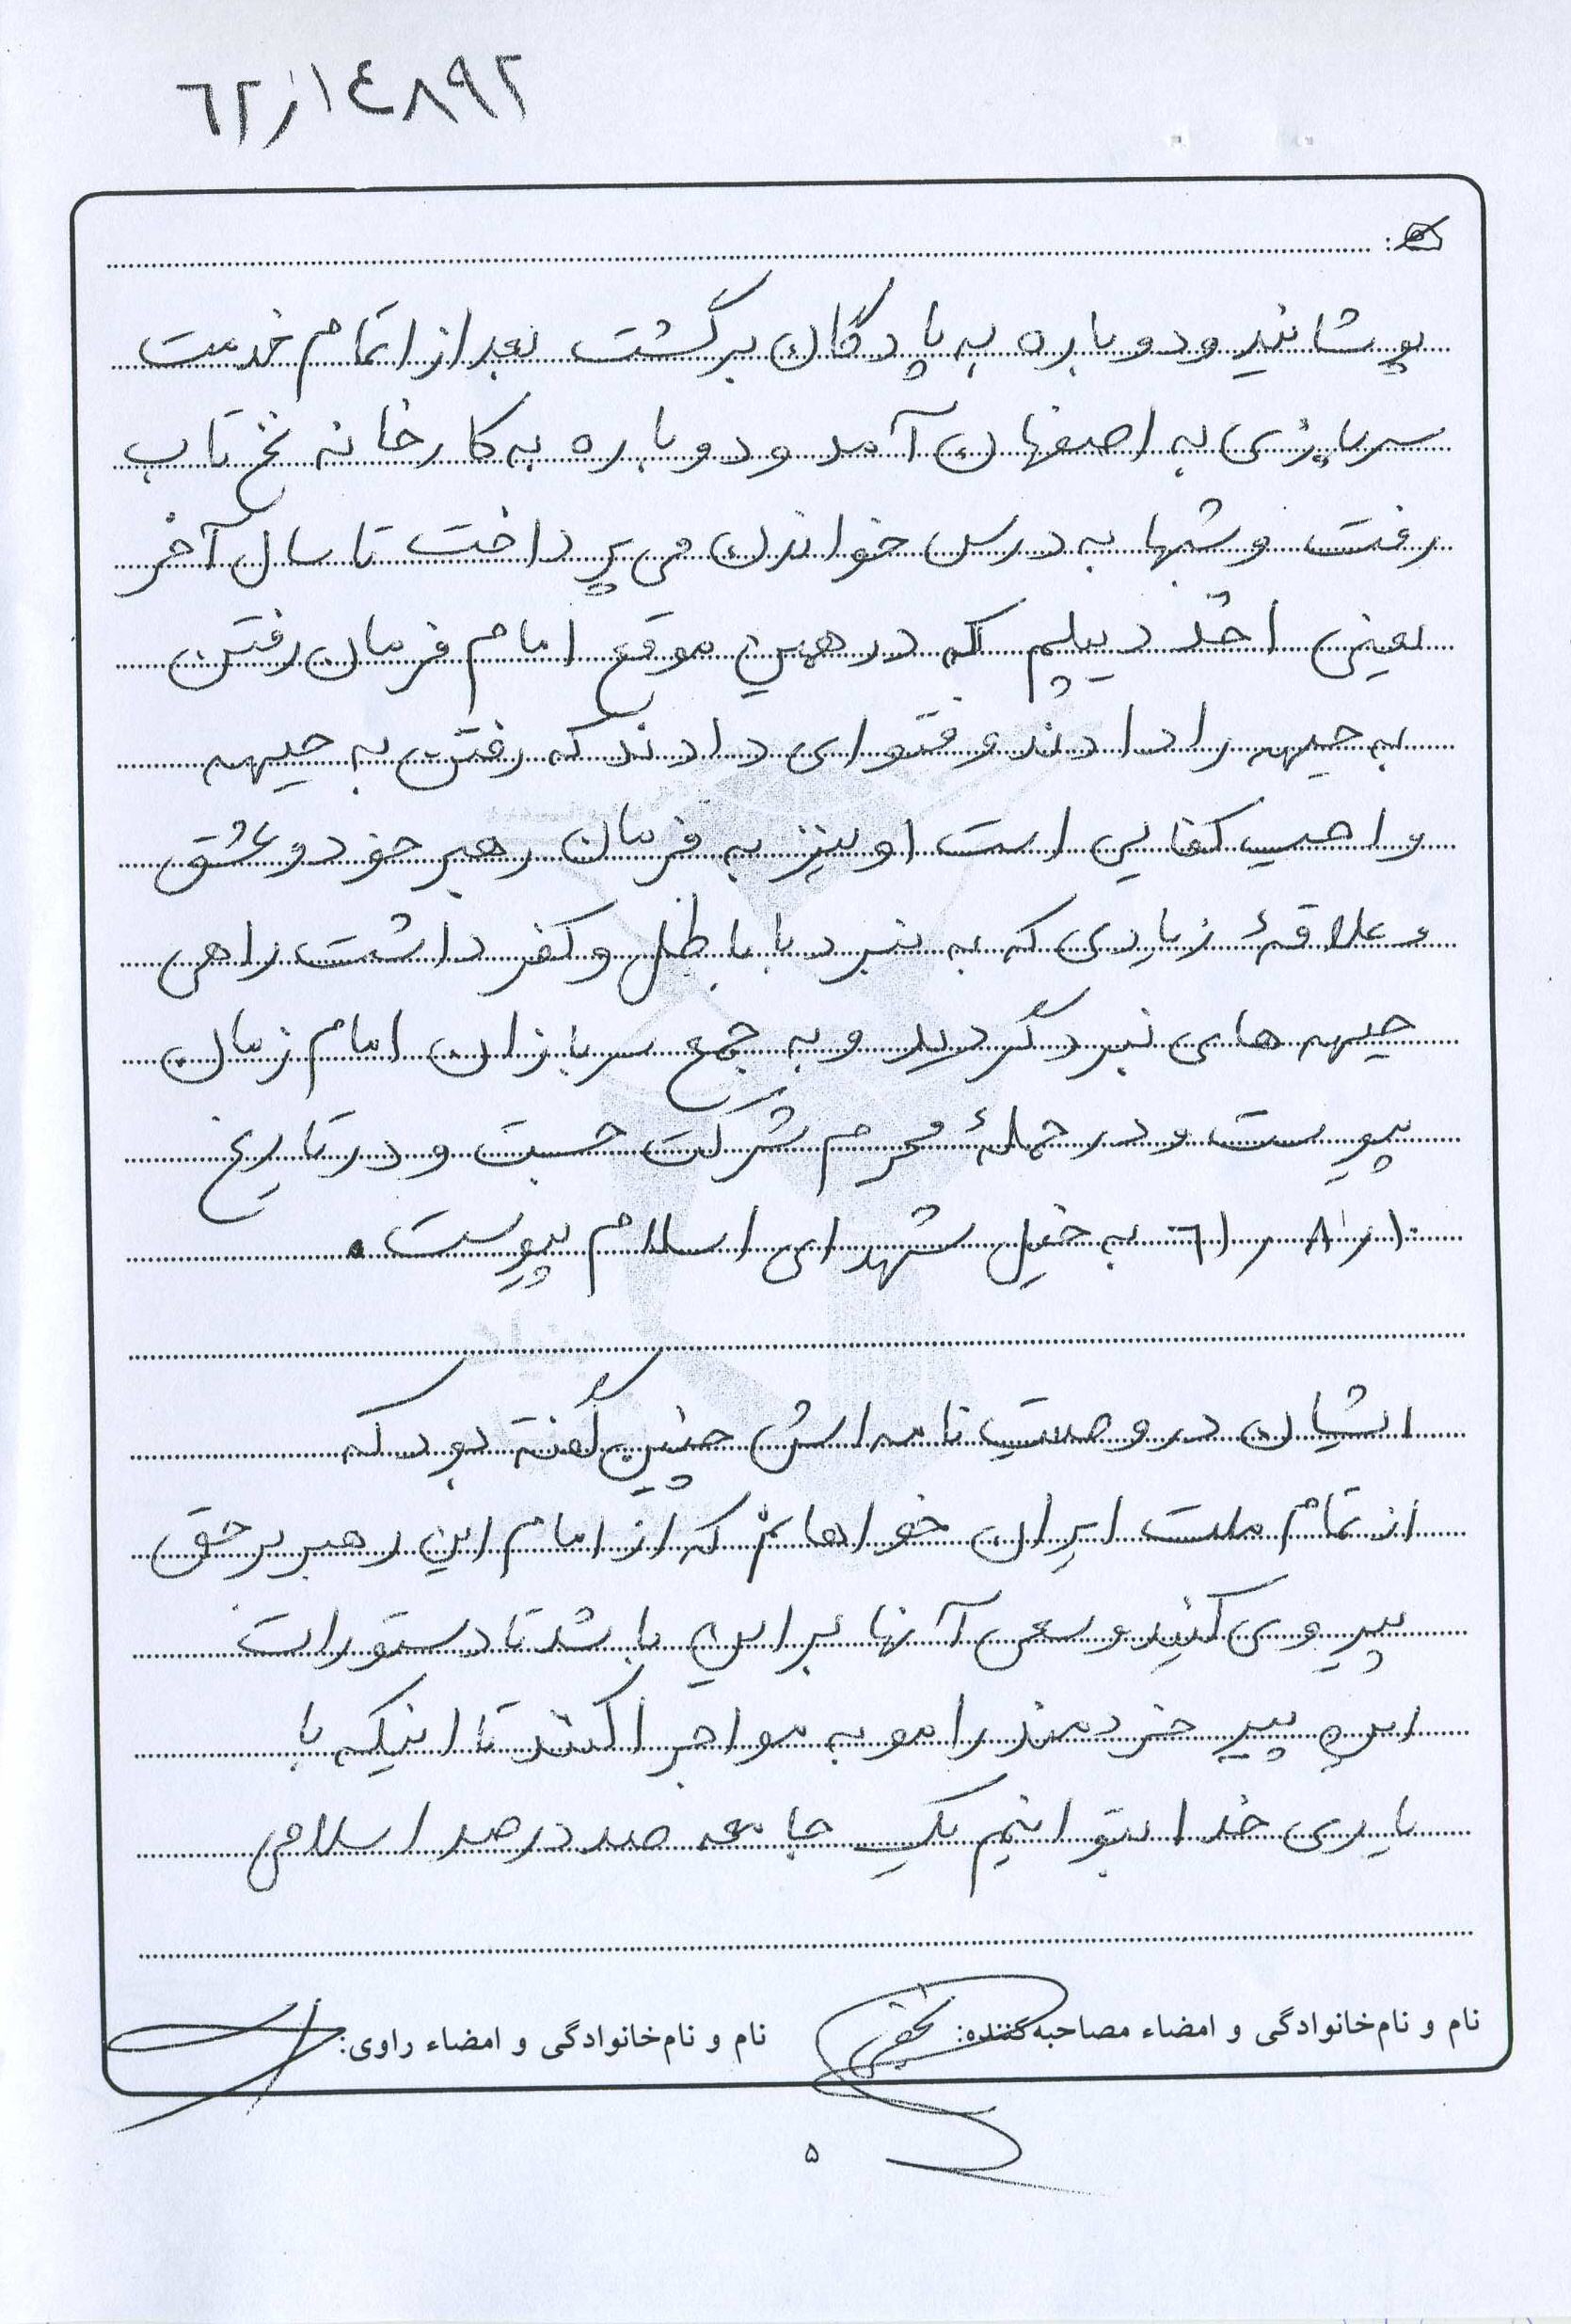 ٦٢ از ١٤٨٩٢
:
پوشانید و دوباره به پادگان برگشت بعد از اتمام خدمت
سربازی به اصفهان آمد و دوباره به کارخانه نخ تاب
رفت و شبها به درس خواندن می پرداخت تا سال آخر
یعنی اخذ دیپلم که در همین موقع امام فرمان رفتن
به جبهه را دادند و فتوای دادند که رفتن به جبهه
واجب کفایی است او نیز به فرمان رهبر خود و عشق
و علاقهٔ زیادی که به نبرد با باطل و کفر داشت راهی
جبهه های نبرد گردید و به جمع سربازان امام زمان
پیوست و در حملهٔ محرم شرکت جست و در تاریخ
١٠ر٨ر٦١ به خیل شهدای اسلام پیوست.
ایشان در وصیت نامه اش چنین گفته بود که
از تمام ملت ایران خواهانم که از امام این رهبر بر حق
پیروی کنید و سعی آنها بر این باشد تا دستورات
این پیر خردمند را مو به مو اجرا کنند تا اینکه با
یاری خدا بتوانیم یک جامعه صد در صد اسلامی
نام و نام‌خانوادگی و امضاء مصاحبه‌کننده: نام و نام‌خانوادگی و امضاء راوی:
۵